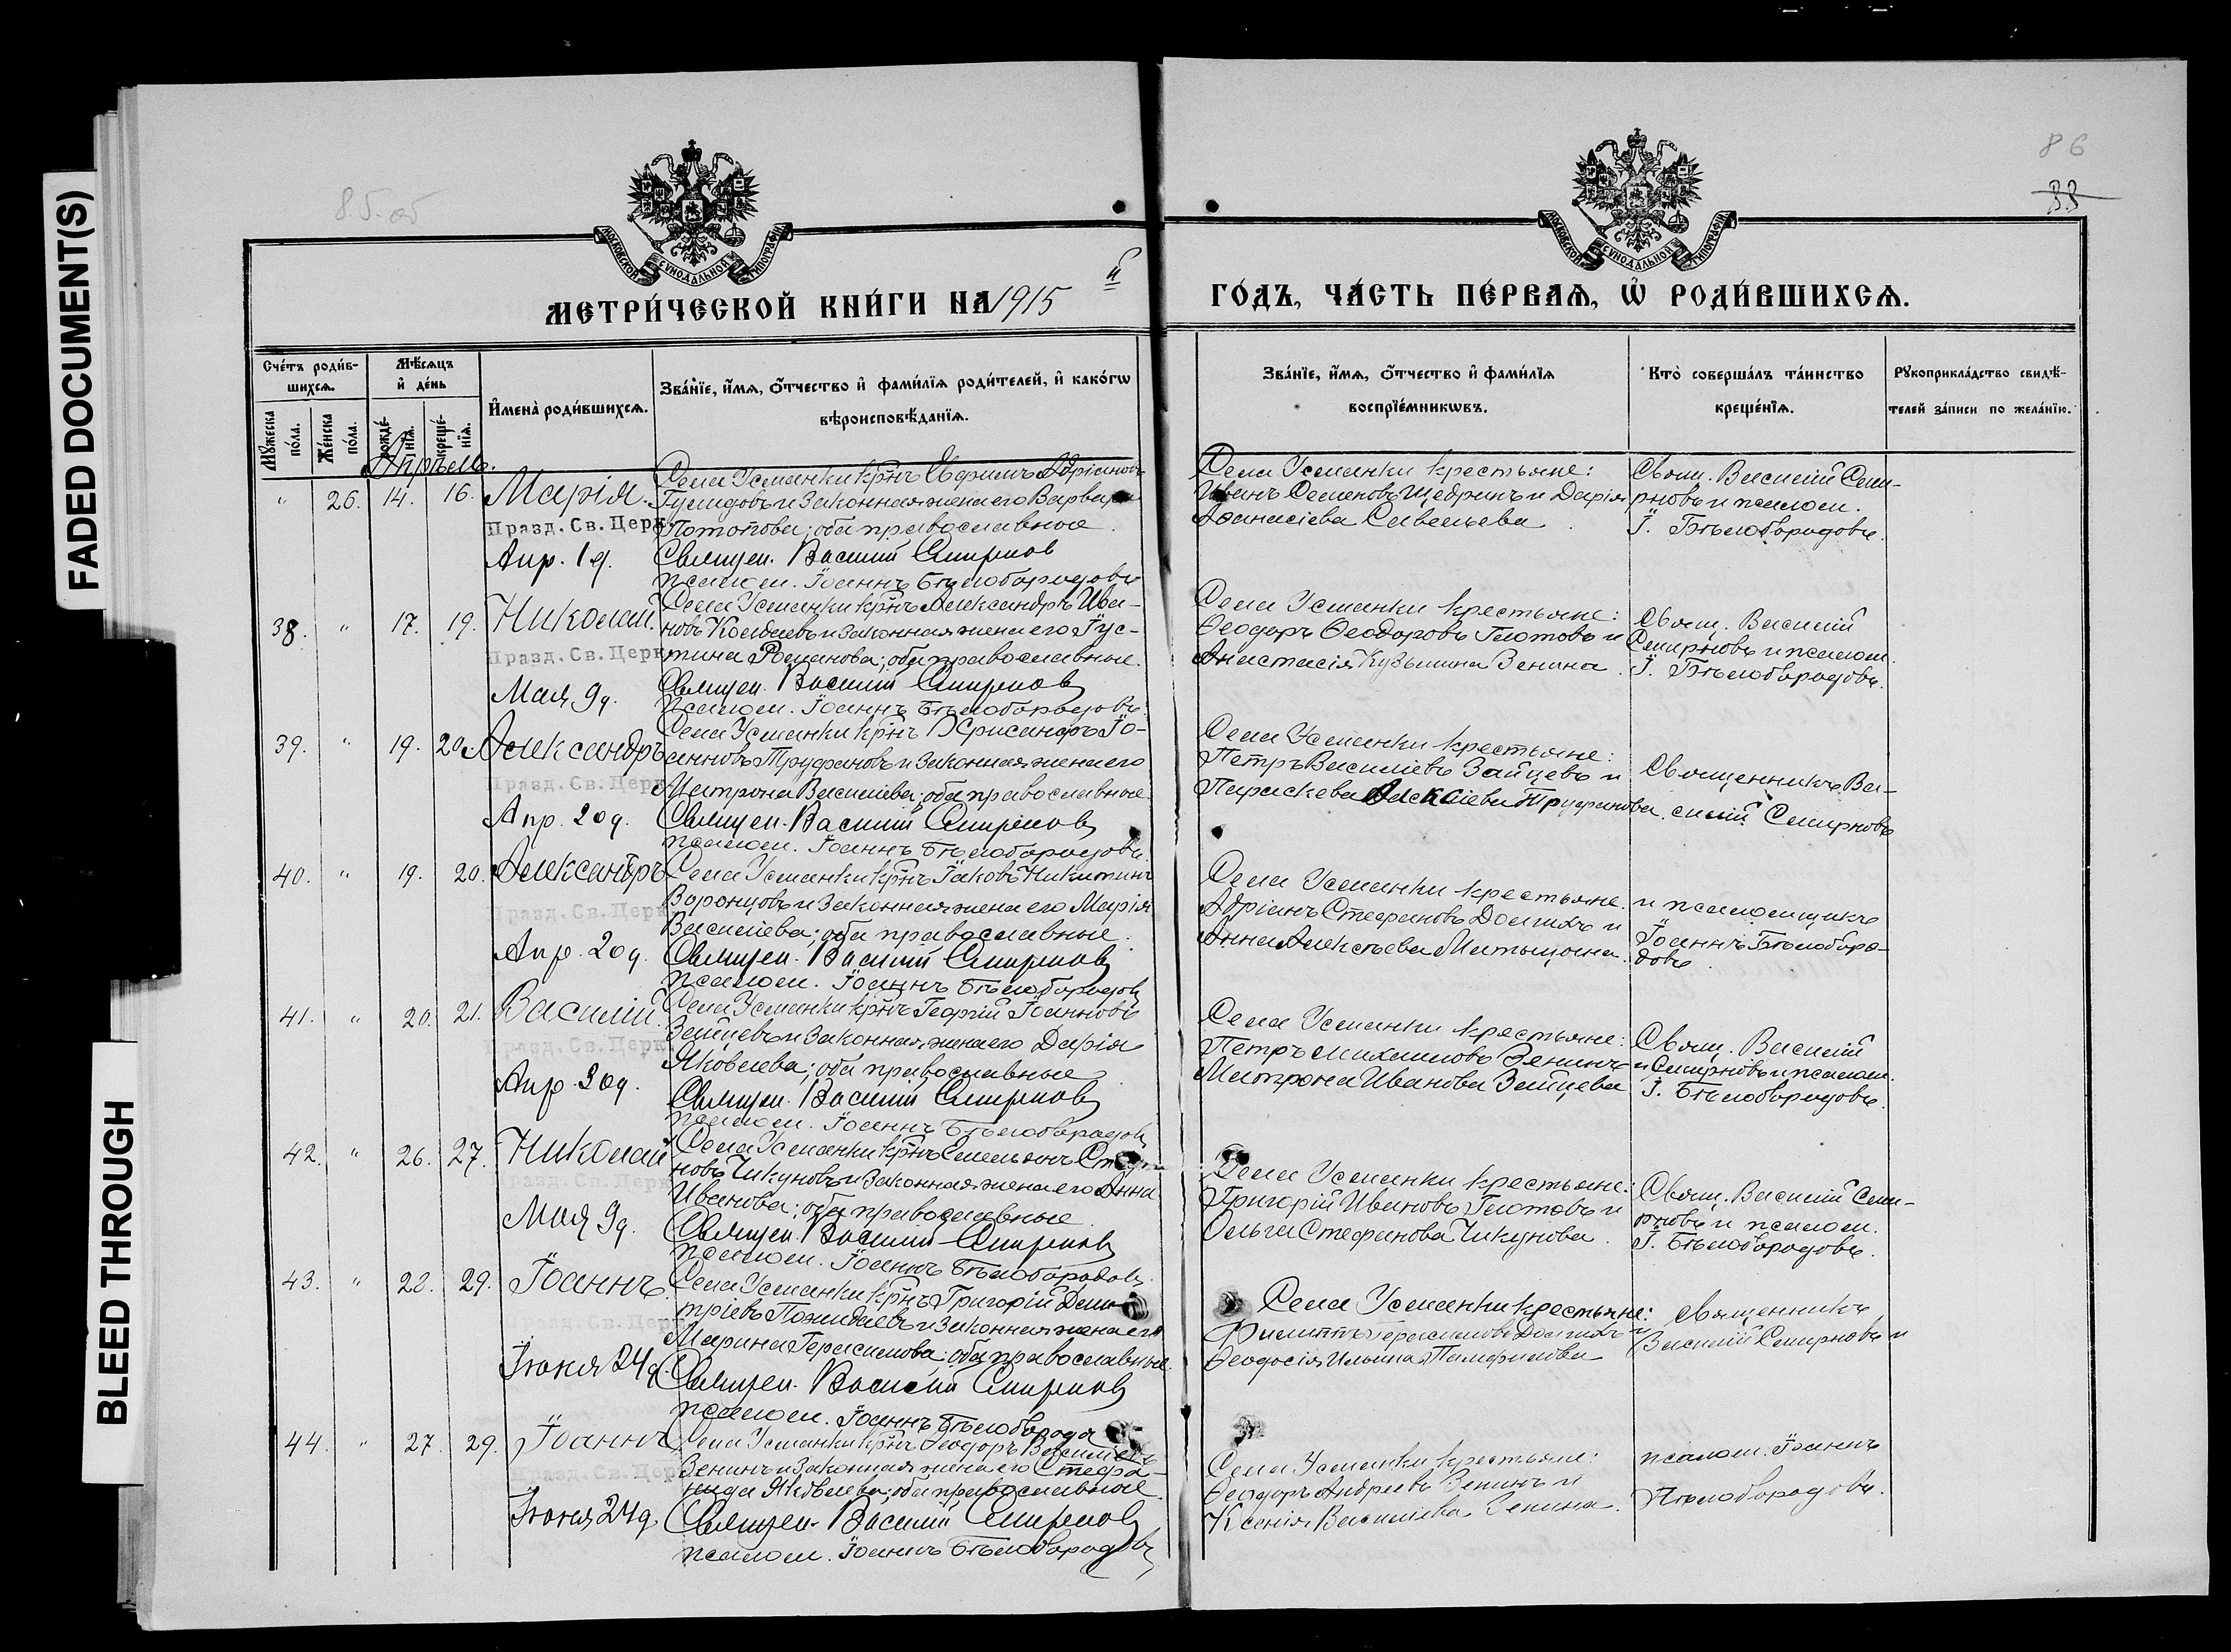 FADED DOCUMENT(S)
BLEED THROUGH
85 об
86
МОСКОВСКОЙ СѴНОДАЛЬНОЙ ТИПОГРАФІИ
МОСКОВСКОЙ СѴНОДАЛЬНОЙ ТИПОГРАФІИ
МЕТРИ́ЧЕСКОЙ КНИ́ГИ НА 1915 й
ГО́ДЪ, ЧА́СТЬ ПЕ́РВАѦ, Ѡ҆ РОДИ́ВШИХСѦ.
Сче́тъ роди́в-
шихсѧ.
Мꙋ́жеска по́ла.
Же́нска по́ла.
Мѣ́сѧцъ
и҆ де́нь
рожде́-нїѧ.
креще́-нїѧ.
И҆мена̀ роди́вшихсѧ.
Зва́нїе, и҆́мѧ, ѻ҆́тчество и҆ фами́лїѧ роди́телей, и҆ како́гѡ
вѣроисповѣ́данїѧ.
Зва́нїе, и҆́мѧ, ѻ҆́тчество и҆ фами́лїѧ
воспрїе́мникѡвъ.
Кто̀ соверша́лъ та́инство
креще́нїѧ.
Рꙋкоприкла́дство свидѣ́-
телей за́писи по жела́нїю.
Апрѣль.
" 26. 14. 16. Марія.
Празд. Св. Церк
Апр. 1 д.
Села Усманки крнъ Ефимъ Адріановъ
и законная жена его Варвара
Потапова; оба православные.
Священ. Василій Смирновъ
псалом. Іоаннъ Бѣлобородовъ
Села Усманки крестьяне:
Иванъ Семеновъ Щедринъ и Дарія
Аѳанасіева Савельева
Свящ. Василій Сми-
рновъ и псалом.
І. Бѣлобородовъ.
38. " 17. 19. Николай.
Празд. Св. Церк
Мая 9 д.
Села Усманки крнъ Александръ Ива-
новъ Колдаевъ и законная жена его Іус-
тина Романова; оба православные.
Священ. Василій Смирновъ
Псалом. Іоаннъ Бѣлобородовъ.
Села Усманки крестьяне:
Ѳеодоръ Ѳеодоровъ Глотовъ и
Анастасія Кузьмина Зенина.
Свящ. Василій
Смирновъ и псалом.
І. Бѣлобородовъ.
39. " 19. 20. Александръ
Празд. Св. Церк
Апр. 20 д.
Села Усманки крнъ Хрисанфъ Іо-
анновъ Труфановъ и законная жена его
Матрона Василіева; оба православные.
Священ. Василій Смирновъ
псалом. Іоаннъ Бѣлобородовъ.
Села Усманки крестьяне:
Петръ Василіевъ Зайцевъ и
Параскева Труфанова.
Священникъ Ва-
силій Смирновъ
40. " 19. 20. Александръ
Празд. Св. Церк
Апр. 20 д.
Села Усманки крнъ Іаковъ Никитинъ
Воронцовъ и законная жена его Марія
Василіева; оба православные.
Священ. Василій Смирновъ
псалом. Іоаннъ Бѣлобородовъ
Села Усманки крестьяне.
Адріанъ Стефановъ Долгихъ и
Анна Алексѣева Матыцына.
и псаломщикъ
Іоаннъ Бѣлоборо-
довъ.
41. " 20. 21. Василій.
Празд. Св. Церк
Апр. 30 д.
Села Усманки крнъ Георгій Іоанновъ
Зайцевъ и законная жена его Дарія
Яковлева; оба православные.
Священ. Василій Смирновъ
псалом. Іоаннъ Бѣлобородовъ
Села Усманки крестьяне:
Петръ Михаиловъ Зенинъ и
Матрона Иванова Зайцева
Свящ. Василій
Смирновъ и псалом.
І. Бѣлобородовъ.
42. " 26. 27. Николай
Празд. Св. Церк
Мая 9 д.
Села Усманки крнъ Емельянъ
новъ Чикуновъ и законная жена его Анна
Иванова; оба православные.
Священ. Василій Смирновъ
псалом. Іоаннъ Бѣлобородовъ.
Села Усманки крестьяне:
Григорій Ивановъ Глотовъ и
Ольга Стефанова Чикунова.
Свящ. Василій Сми-
рновъ и псалом.
І. Бѣлобородовъ.
43. " 28. 29. Іоаннъ.
Празд. Св. Церк
Іюня 24 д.
Села Усманки крнъ Григорій Дими-
тріевъ Пожидаевъ и законная жена его
Марина Герасимова; оба православные.
Священ. Василій Смирновъ
псалом. Іоаннъ Бѣлобородо
Села Усманки крестьяне:
Филиппъ Герасимовъ Долгихъ и
Ѳеодосія Ильина Памфилова
Священникъ
Василій Смирновъ и
44. " 27. 29. Іоаннъ
Празд. Св. Церк
Іюня 24 д.
Села Усманки крнъ Ѳеодоръ Василіевъ
Зенинъ и законная жена его Стефа-
нида Яковлева; оба православные.
Священ. Василій Смирновъ
псалом. Іоаннъ Бѣлобородовъ
Села Усманки крестьяне:
Ѳеодоръ Андреевъ Зенинъ и
Ксенія Василіева Зенина.
псалом. Іоаннъ
Бѣлобородовъ.